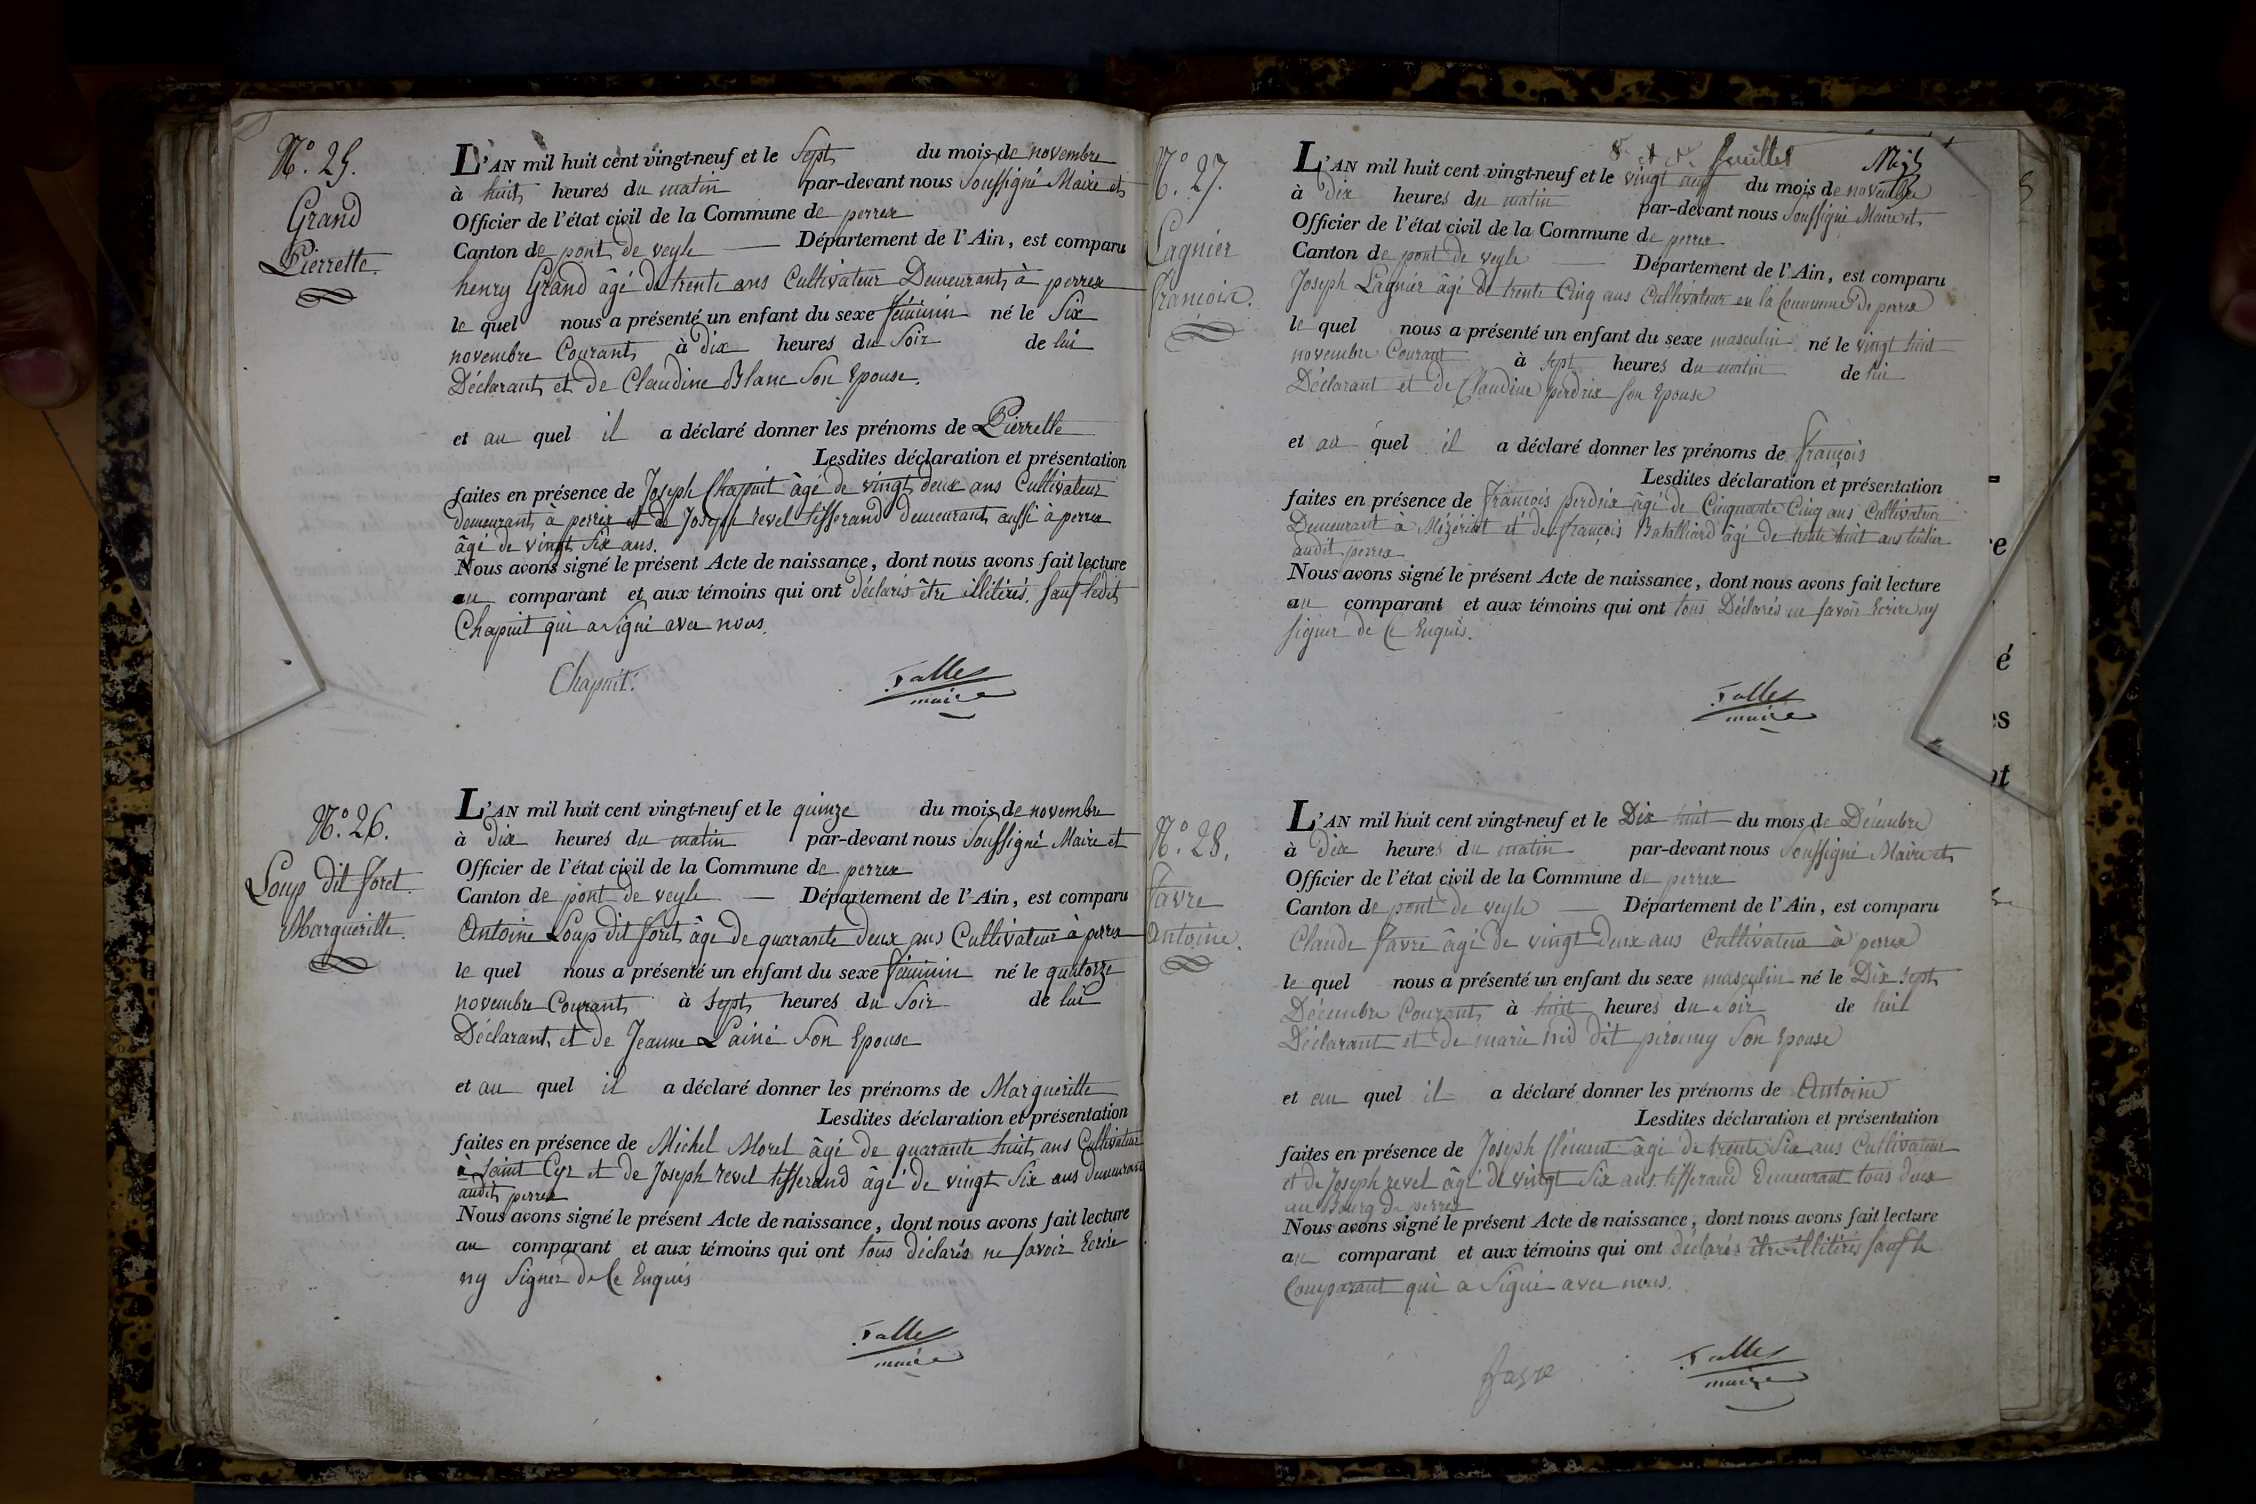 N.° 25.
Grand
Pierrette.
L'AN mil huit cent vingt-neuf et le Sept du mois de novembre
à huit heures du matin par-devant nous Soussigné Maire et
Officier de l'état civil de la Commune de perrex
Canton de pont de veyle Département de l'Ain, est comparu
henry Grand âgé de trente ans Cultivateur Demeurant à perrex
le quel nous a présenté un enfant du sexe féminin né le Six
novembre Courant à dix heures du Soir de lui
Déclarant et de Claudine Blanc Son Epouse.
et au quel il a déclaré donner les prénoms de Pierrette
Lesdites déclaration et présentation
faites en présence de Joseph Chapuit âgé de vingt deux ans Cultivateur
demeurant à perrex et de Joseph revel tisserand demeurant aussi à perrex
âgé de vingt Six ans.
Nous avons signé le présent Acte de naissance, dont nous avons fait lecture
au comparant et aux témoins qui ont déclarés être illitérés. sauf ledit
Chapuit qui a Signé avec nous.
Chapuit.
Falle
maire
N.° 26.
Loup dit foret.
Margueritte.
L'AN mil huit cent vingt-neuf et le quinze du mois de novembre
à Dix heures du matin par-devant nous Soussigné Maire et
Officier de l'état civil de la Commune de perrex
Canton de pont de veyle Département de l'Ain, est comparu
Antoine Loup dit foret âge de quarante deux ans Cultivateur à perrex
le quel nous a présenté un enfant du sexe féminin né le quatorze
novembre Courant à Sept heures du Soir de lui
Déclarant et de Jeanne Lainé Son Epouse
et au quel il a déclaré donner les prénoms de Margueritte
Lesdites déclaration et présentation
faites en présence de Michel Morel âgé de quarante huit ans Cultivateur
à Saint Cyr et de Joseph revel tisserand âgé de vingt Six ans demeurant
audit perrex
Nous avons signé le présent Acte de naissance, dont nous avons fait lecture
au comparant et aux témoins qui ont tous déclarés ne savoir Ecrire
ny Signer de Ce Enquis
Falle
maire
8.e et feuillet
N.° 27.
Lagnier
françois.
L'AN mil huit cent vingt-neuf et le vingt neuf du mois de novembre
à Dix heures du matin par-devant nous Soussigné Maire et
Officier de l'état civil de la Commune de perrex
Canton de pont de veyle Département de l'Ain, est comparu
Joseph Lagnier âgé de trente Cinq ans Cultivateur en la Commune De perrex
le quel nous a présenté un enfant du sexe masculin né le vingt huit
novembre Courant à sept heures du matin de lui
Déclarant et de Claudine perdrix Son Epouse
et au quel il a déclaré donner les prénoms de françois
Lesdites déclaration et présentation
faites en présence de françois perdrix âgé de Cinquante Cinq ans Cultivateur
Demeurant à Mézériat et de françois Batalliard âgé de trente huit ans
audit perrex
Nous avons signé le présent Acte de naissance, dont nous avons fait lecture
au comparant et aux témoins qui ont tous Déclarés ne savoir Ecrire ny
signer de Ce Enquis.
Falle
maire
N.° 28.
favre
Antoine.
L'AN mil huit cent vingt-neuf et le Dix huit du mois de Décembre
à Dix heures du matin par-devant nous Soussigné Maire et
Officier de l'état civil de la Commune de perrex
Canton de pont de veyle Département de l'Ain, est comparu
Claude favre âgé de vingt deux ans Cultivateur à perrex
le quel nous a présenté un enfant du sexe masculin né le Dix Sept
Décembre Courant à huit heures du Soir de lui
Déclarant et de marie dit Son Epouse
et au quel il a déclaré donner les prénoms de Antoine
Lesdites déclaration et présentation
faites en présence de Joseph flément âgé de trente Six ans Cultivateur
et de Joseph revel âgé de vingt Six ans tisserand Demeurant tous deux
au Bourg de perrex
Nous avons signé le présent Acte de naissance, dont nous avons fait lecture
au comparant et aux témoins qui ont déclarés être illitérés sauf le
Comparant qui a Signé avec nous.
favre
Falle
maire